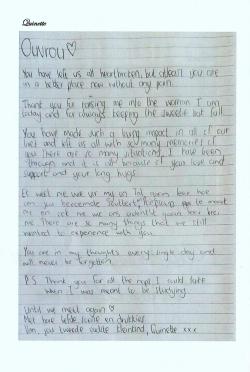 Quinette
Ouvrou ♡
You have left us all heartbroken, but atleast you are
in a better place now without any pain.
Thank you for raising me into the woman I am
today and for always keeping the sweetie bol full.
You have made such a big impact in all of our
lives and left us all with so many memories of
you. There are so many situations, I have been
through and it is all because of your love and
support and your long hugs.
me. There are so many things that we still
wanted to experience with you.
You are in my thoughts every single day and
will never be forgotten.
P.S. Thank you for all the naps I could take
when I was meant to be studying.
Until we meet again ♡
Met baie liefde soene en drukkies
Van, jou tweede oudste kleinkind, Quinette xxx